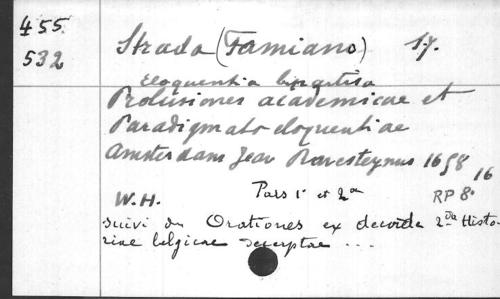 455.
532
Strada (Famiano) S.J.
Eloquentia bipartita
Prolusiones academicae et
Paradigmata eloquentiae
Amsterdam Jean Ravesteynus 1658
16
W.H. Pars 1ª et 2ª RP 8º
suivi du Orationes ex decade 2da Histo-
riae belgicae decerptae ...